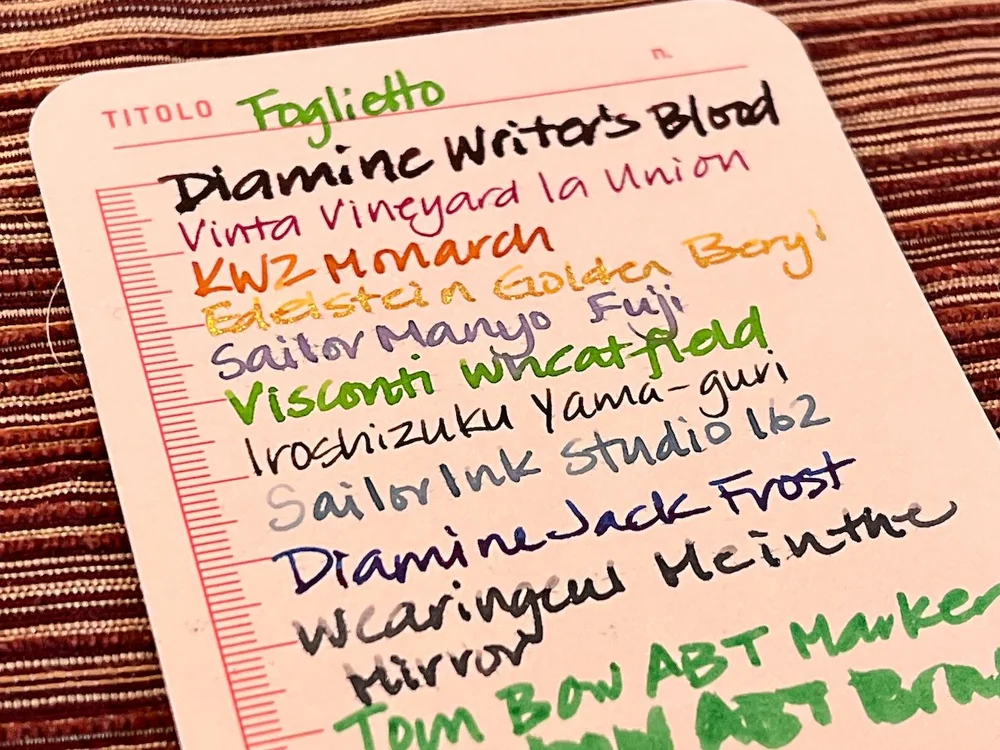 TITOLO Foglietto n.
Diamine Writer's Blood
Vinta Vineyard la Union
KWZ Monarch
Edelstein Golden Beryl
Sailor Manyo Fuji
Visconti Wheatfield
Iroshizuku Yama-guri
Sailor Ink Studio 162
Diamine Jack Frost
Wearingeul Me in the
Mirror
Tom Bow ABT Marker
ABT